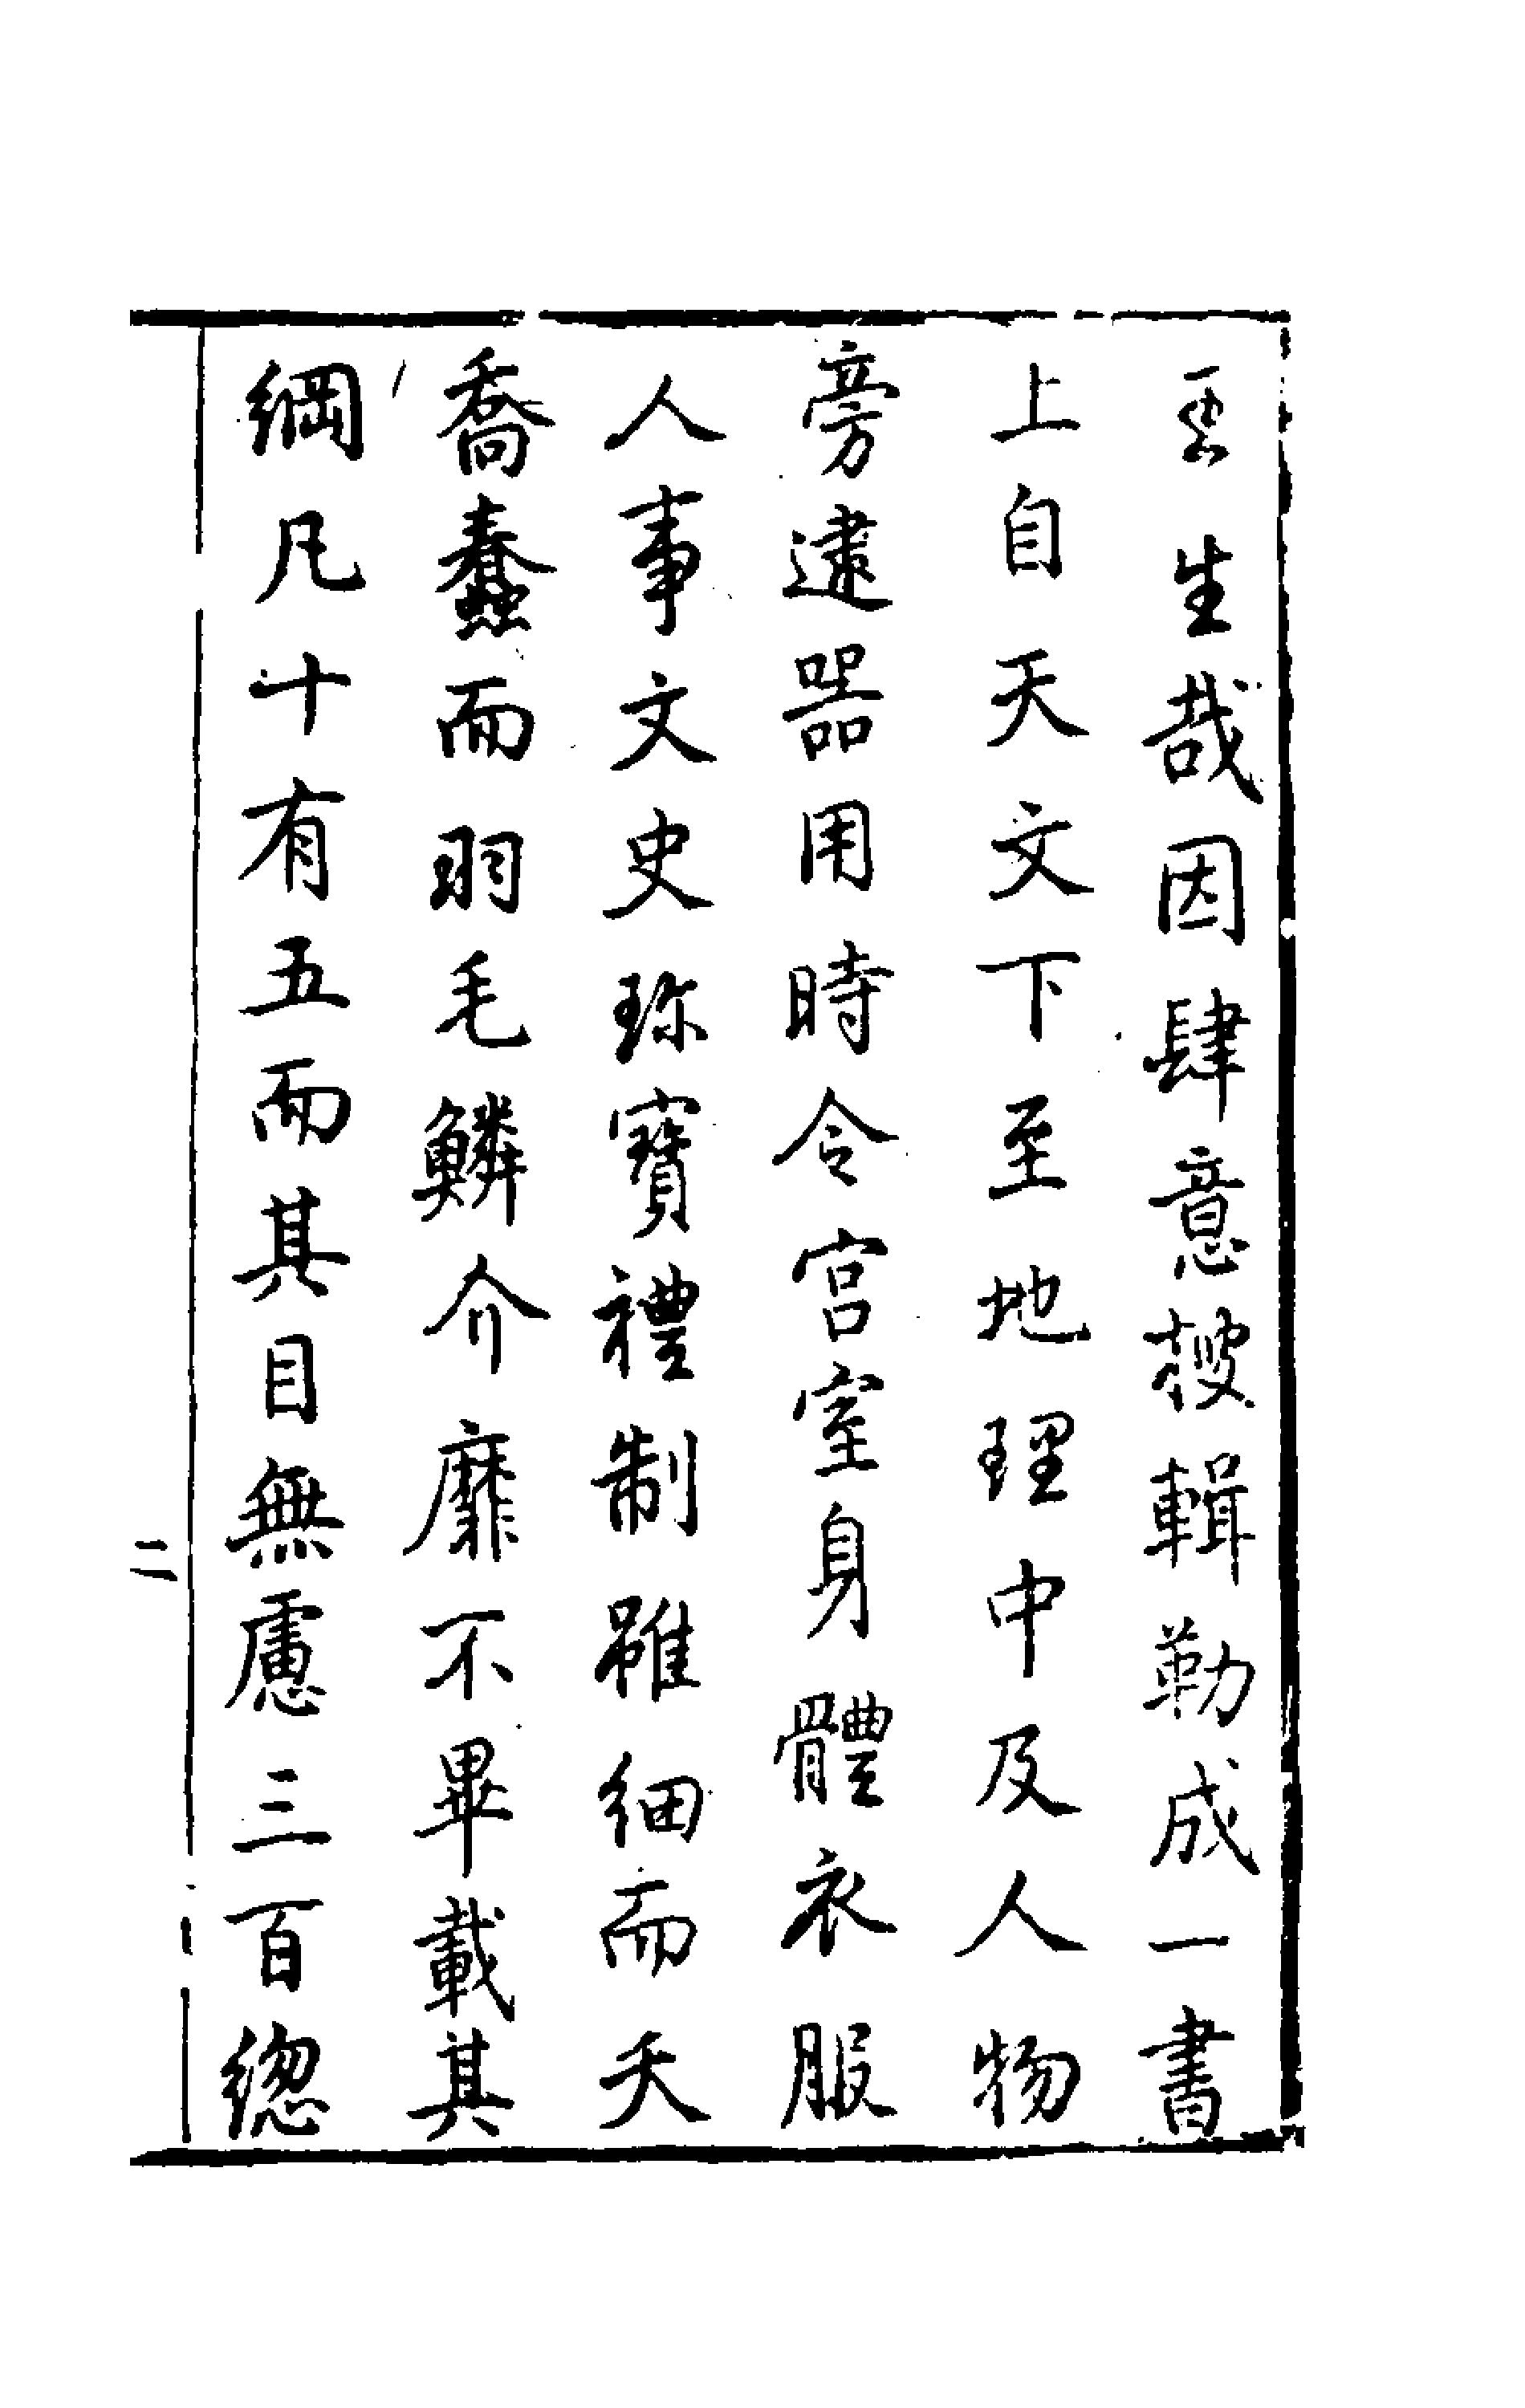 悪生哉因肆意搜輯勒成一書
上自天文下至地理中及人物
旁逮器用時令宮室身體衣服
人事文史珎寶禮制雖細而夭
喬蠢而羽毛鱗介靡不畢載其
綱凡十有五而其目無慮三百總
二